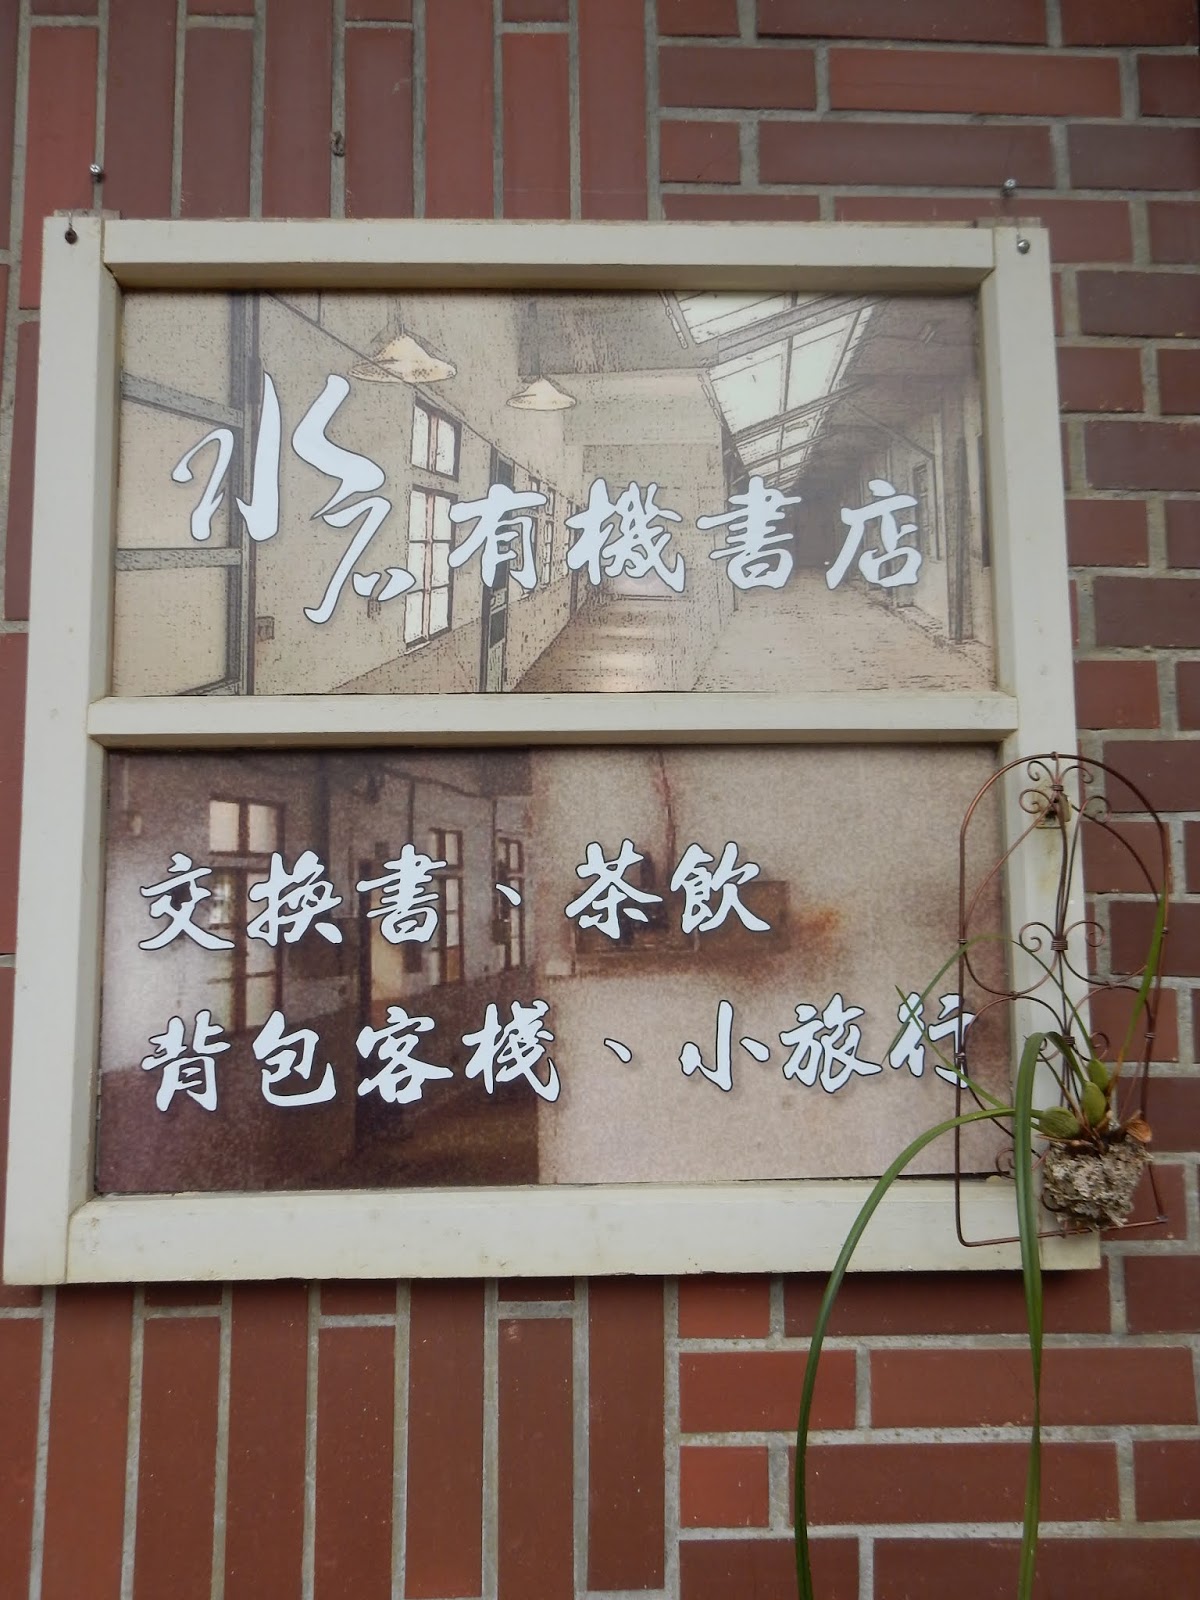 水石有機書店
交換書、茶飲
背包客棧、小旅行